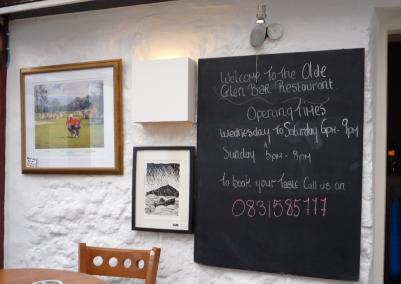 Welcome To The Olde
Glen Bar Restaurant.
Opening Times
Wednesday To Saturday 6pm-9pm
&
Sunday 5pm-8pm
To book your Table Call us on
0831585777